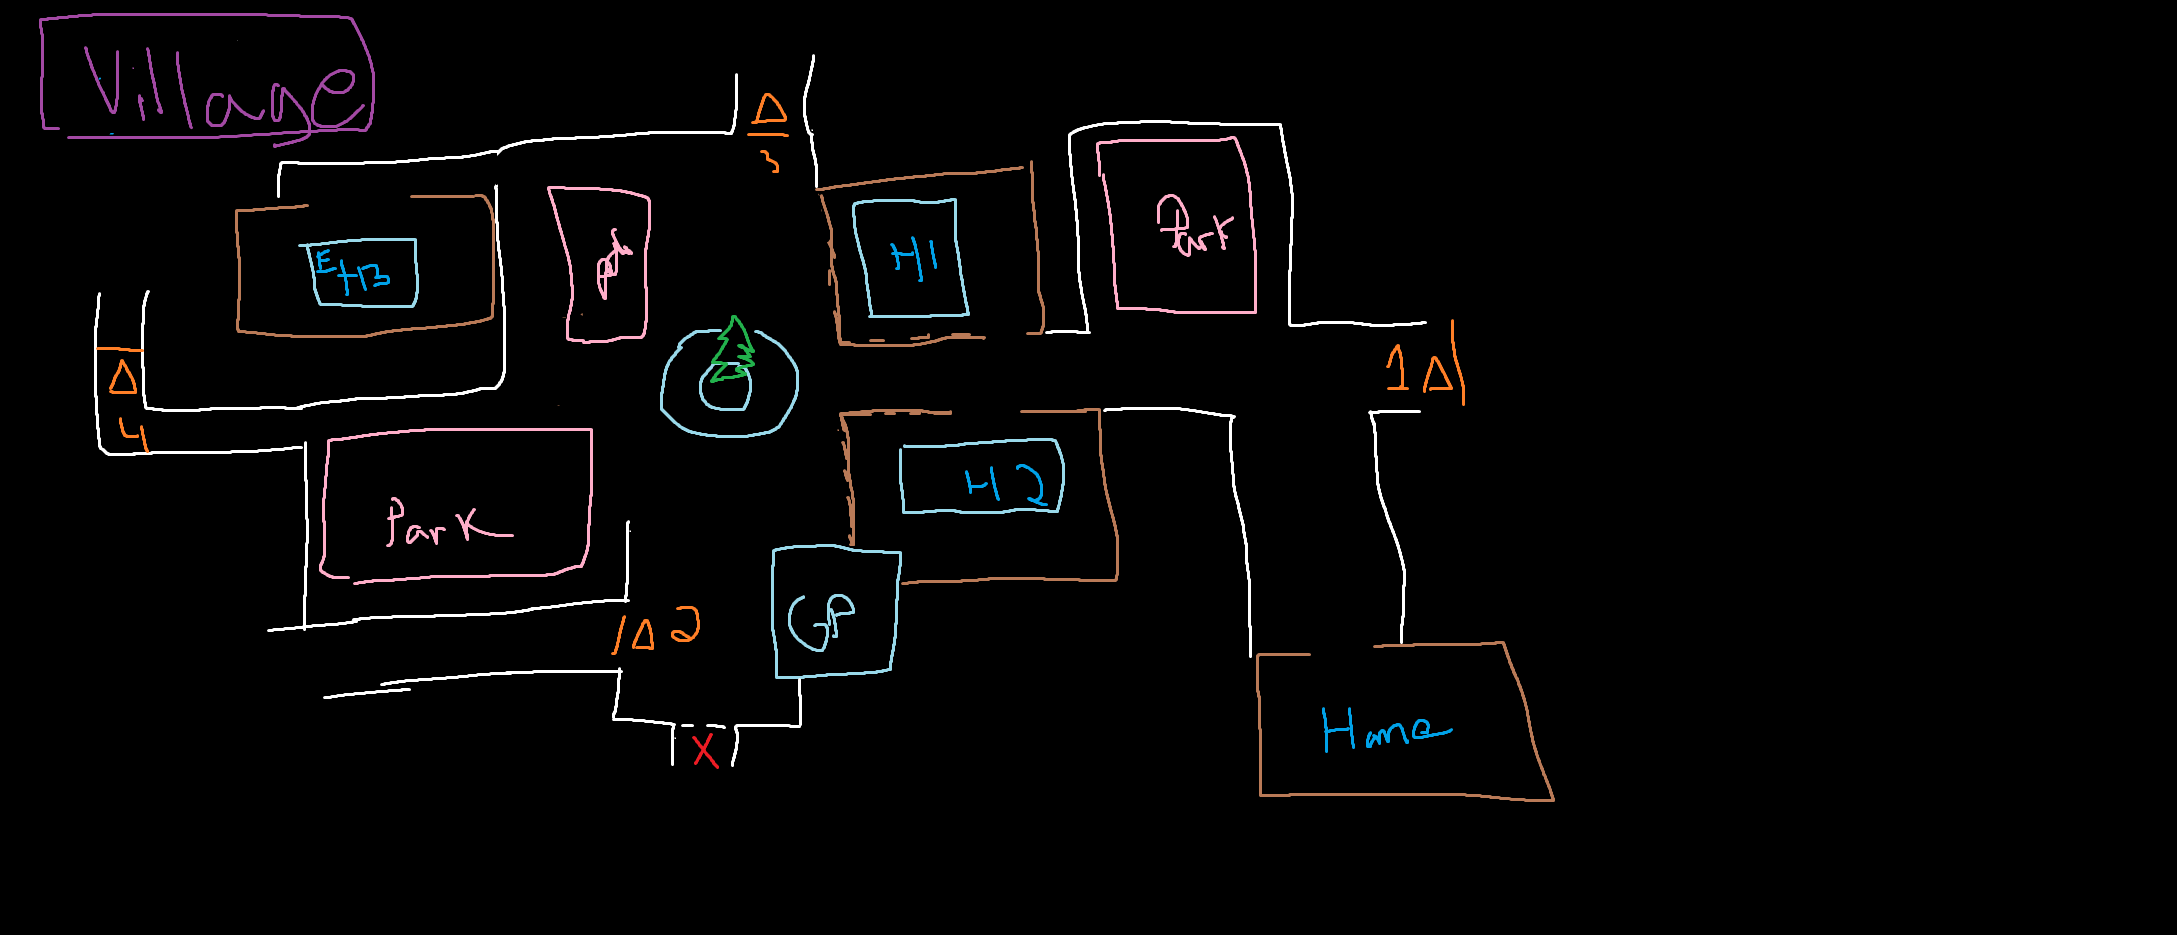 Village
Δ
3
E H3
Park
H1
Park
Δ
4
1 Δ
Park
H2
Δ 2
GP
X
Home